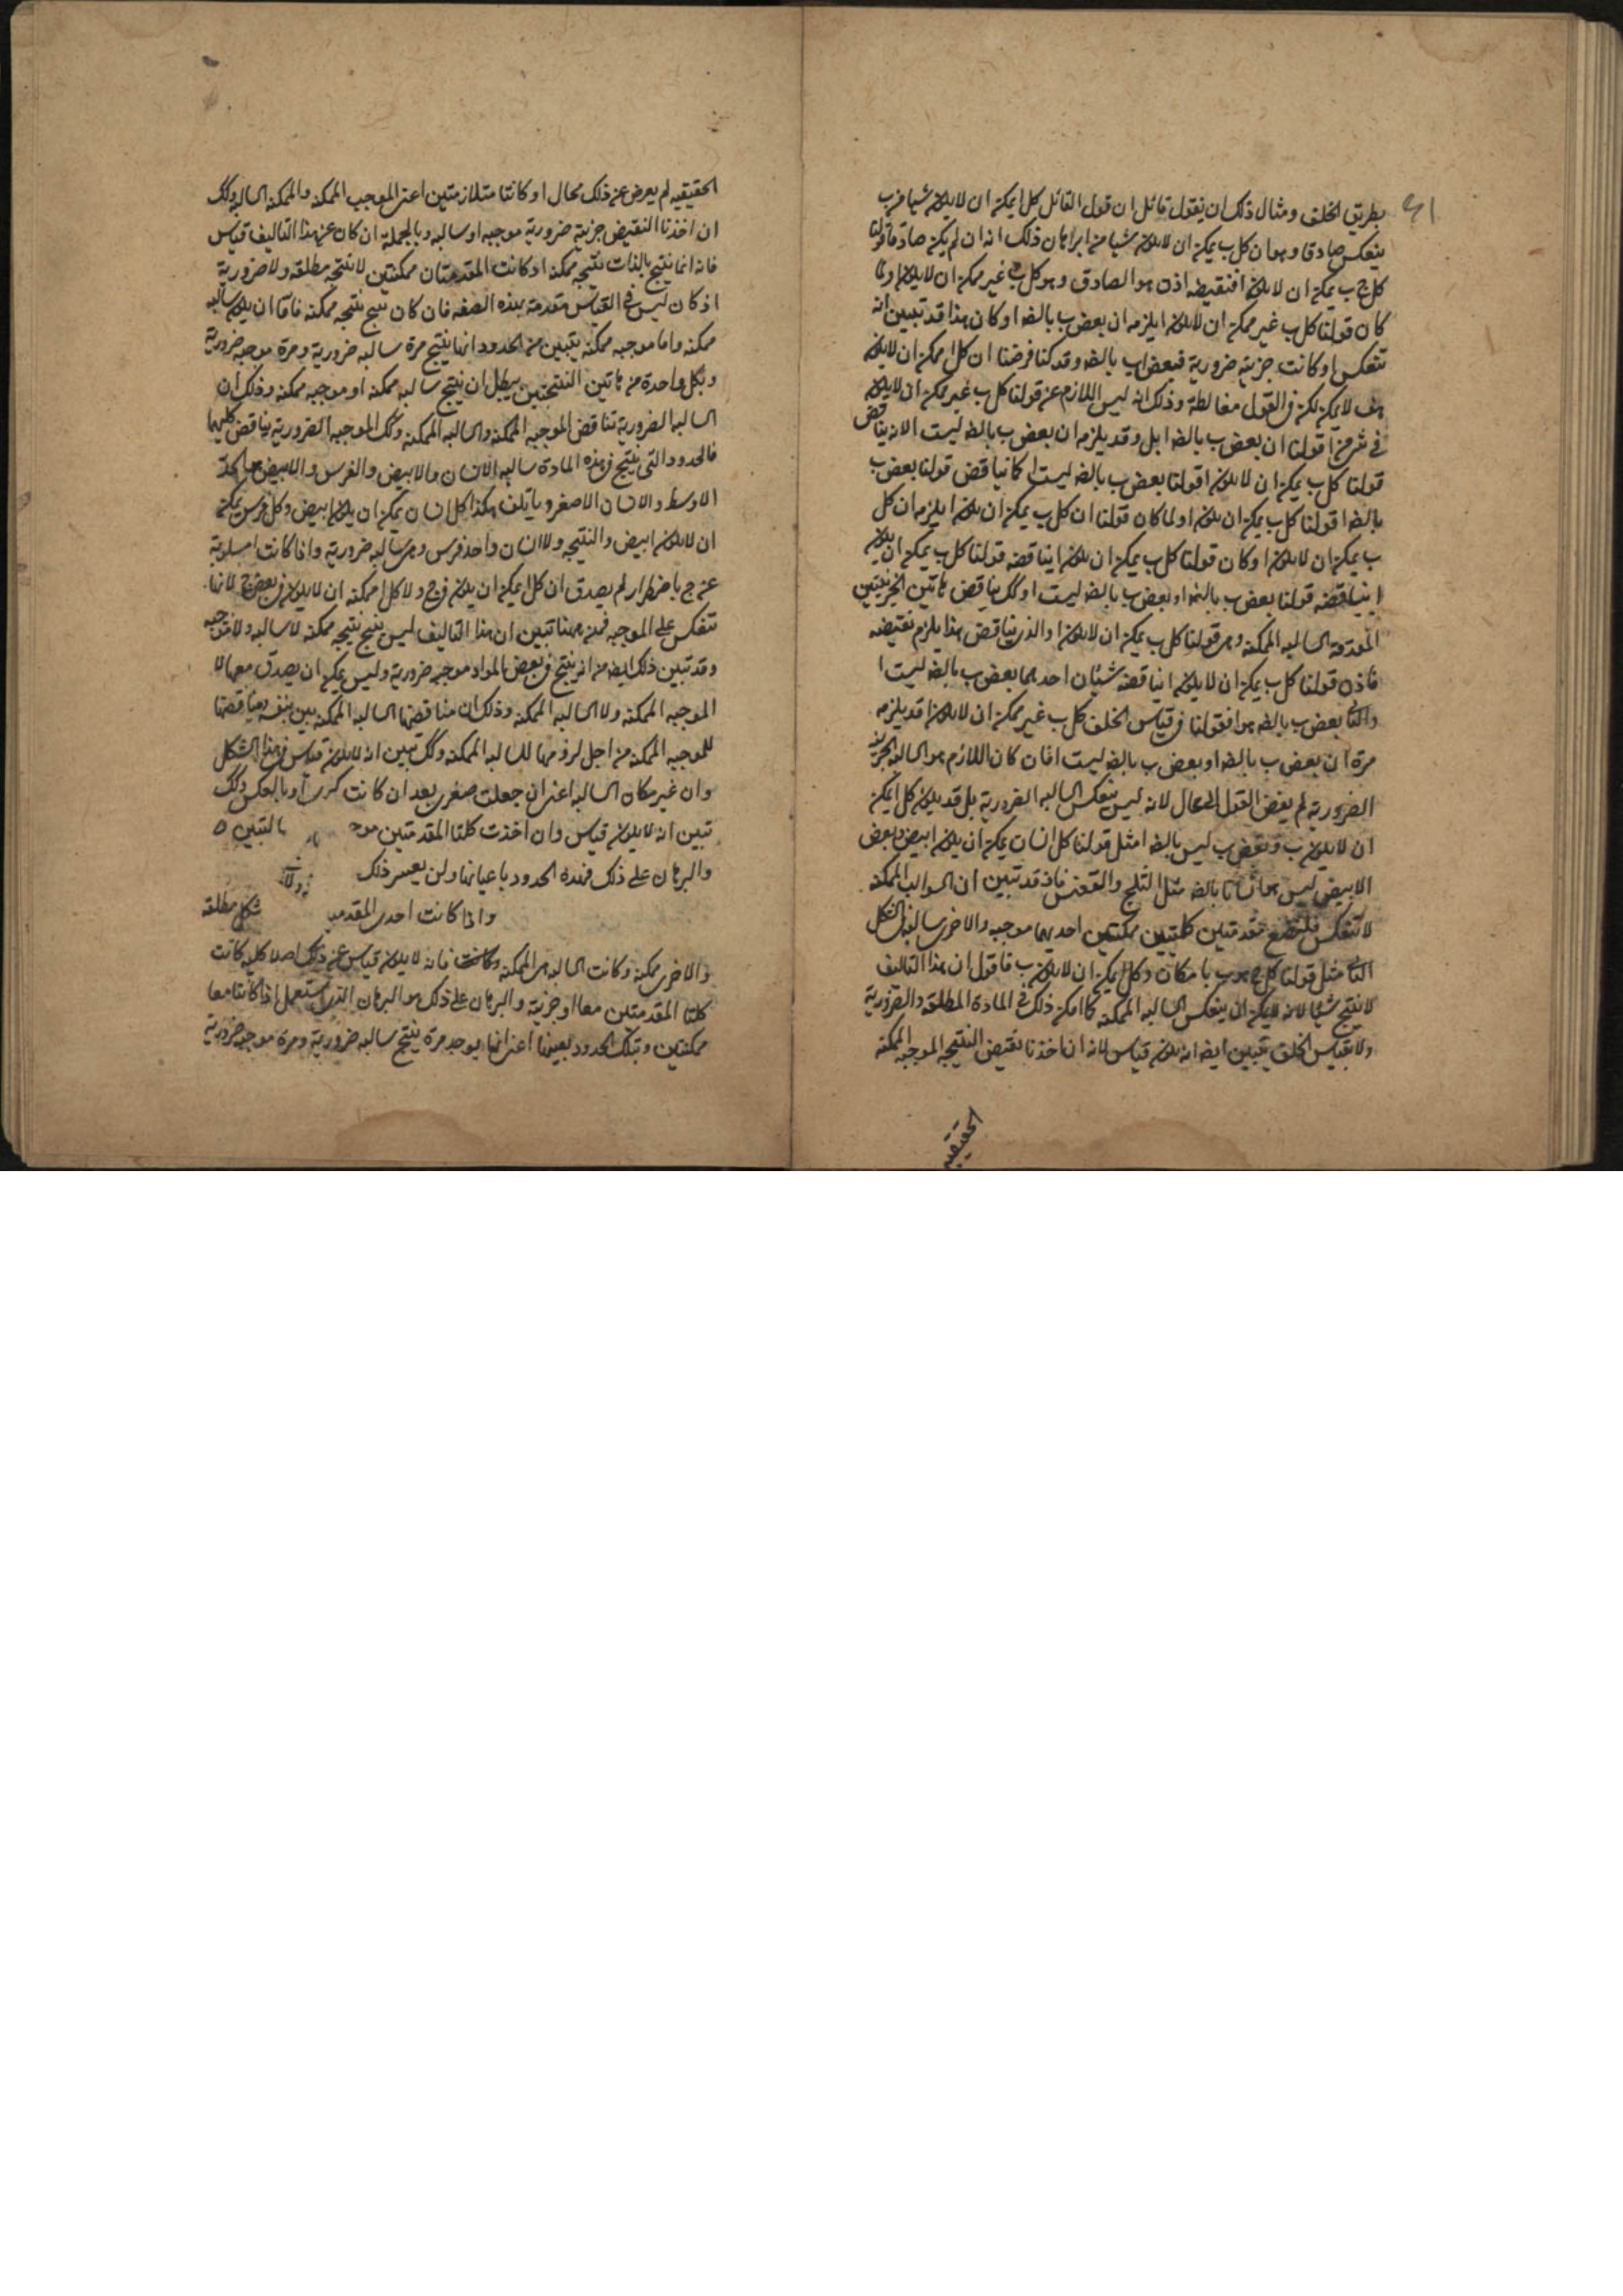 بطريق الخلف ومثال ذلك ان يقول قائل ان قول القائل كل ا يمكن ان لا يكون شيا من ب
ينعكس صادقا وهو ان كل ب يمكن ان لا يكون شيا من ا برهان ذلك انه ان لم يكن صادقا قولنا
كل ب يمكن ان لا يكون ا فنقيضه اذن هو الصادق وهو كل ب غير ممكن ان لا يكون ا ولما
كان قولنا كل ب غير ممكن ان لا يكون ا يلزمه ان بعض ب بالضه ا وكان هذا قد تبين انه
تنعكس اذ كانت جزئية ضرورية فبعض ا ب بالضه وقد كنا فرضنا ان كل ا ممكن ان لا يكون
هف لا يمكن لكن في القول مغالطة وذلك انه ليس اللازم عن قولنا كل ب غير ممكن ان لا يكون
في شي من ا قولنا ان بعض ب بالضه ا بل وقد يلزمه ان بعض ب بالضه ليست ا لانه يناقض
قولنا كل ب يمكن ان لا يكون ا قولنا بعض ب بالضه ليست ا كما يناقض قولنا بعض ب
بالضه ا قولنا كل ب يمكن ان يكون ا ولما كان قولنا ان كل ب يمكن ان يكون ا يلزمه ان كل
ب يمكن ان لا يكون ا وكان قولنا كل ب يمكن ان يكون ا يناقضه قولنا كل ب يمكن ان يكون
ا يناقضه قولنا بعض ب بالضه ا وبعض ب بالضه ليست ا وكك يناقض هاتين الجزئيتين
المقدمة السالبه الممكنه وهي قولنا كل ب يمكن ان لا يكون ا والذي يناقض هذا يلزم نقيضه
فاذن قولنا كل ب يمكن ان لا يكون ا يناقضه شيئان احدهما بعض ب بالضه ليست ا
والثاني بعض ب بالضه هو ا فقولنا في قياس الخلف كل ب غير ممكن ان لا يكون ا قد يلزمه
مرة ان بعض ب بالضه ا وبعض ب بالضه ليست ا فان كان اللازم هو السالبه الجزئية
الضرورية لم يفض القول الى محال لانه ليس ينعكس السالبه الضرورية بل قد يكون كل ا يمكن
ان لا يكون ب وبعض ب ليس بالضه ا مثل قولنا كل انسان يمكن ان يكون ابيض وبعض
الابيض ليس هو انسانا بالضه مثل الثلج والققنس فاذ قد تبين ان السوالب الممكنه
لا تنعكس فلنضع مقدمتين كليتين ممكنتين احديهما موجبه والاخرى سالبه في الشكل
الثاني مثل قولنا كل ج هو ب بامكان وكل ا يمكن ان لا يكون ب فاقول ان هذا التاليف
لا ينتج شيئا لانه لا يمكن ان ينعكس السالبه الممكنه كما امكن ذلك في المادة المطلقه والضرورية
ولا بقياس الخلف يتبين ايضا انه يكون قياس لانه ان اخذنا نقيض النتيجه الموجبه الممكنه
الحقيقيه
الحقيقيه لم يعرض عن ذلك محال اذ كانتا متلازمتين اعني الموجب الممكنه والممكنه السالبه وكك
ان اخذنا النقيض جزئية ضرورية موجبه او سالبه وبالجملة ان كان عن هذا التاليف قياس
فانه انما ينتج بالذات نتيجه ممكنه اذ كانت المقدمتان ممكنتين لا نتيجه مطلقه ولا ضرورية
اذ كان ليس في القياس مقدمة بهذه الصفه فان كان ينتج نتيجه ممكنه فاما ان يكون سالبه
ممكنه واما موجبه ممكنه يتبين من الحدود انها ينتج مرة سالبه ضرورية ومرة موجبه ضرورية
وبكل واحدة من هاتين النتيجتين يبطل ان ينتج سالبه ممكنه او موجبه ممكنه وذلك ان
السالبه الضرورية تناقض الموجبه الممكنه والسالبه الممكنه وكك الموجبه الضرورية يناقض كليهما
فالحدود التي ينتج في هذه المادة سالبه الانسان والابيض والفرس والابيض هو الحد
الاوسط والانسان الاصغر ويأتلف هكذا كل انسان يمكن ان يكون ابيض وكل فرس يمكن
ان لا يكون ابيض والنتيجه ولا انسان واحد فرس وهي سالبه ضرورية واذا كانت ا مسلوبة
عن ج باضطرار لم يصدق ان كل ا يمكن ان يكون في ج ولا كل ا ممكنه ان لا يكون في بعض ج لانها
تنعكس على الموجبه فمن ههنا تبين ان هذا التاليف ليس ينتج نتيجه ممكنه لا سالبه ولا موجبه
وقد تبين ذلك ايضه من انه ينتج في بعض المواد موجبه ضرورية وليس يمكن ان يصدق معها لا
الموجبه الممكنه ولا السالبه الممكنه وذلك ان مناقضتها السالبه الممكنه بين بنفسه ومناقضتها
للموجبه الممكنه من اجل لزومها للسالبه الممكنه وكك تبين انه لا يكون قياس في هذا الشكل
وان غير مكان السالبه اعني ان جعلت صغرى بعد ان كانت كبرى او بالعكس وكك
تبين انه لا يكون قياس وان اخذت كلتا المقدمتين بالتبين
والبرهان على ذلك فهذه الحدود باعيانها ولن يعسر ذلك
واذا كانت احدى شكل مطلقه
والاخرى ممكنه وكانت السالبه هي الممكنه فانه لا يكون قياس عن ذلك اصلا كليه كانت
كلتا المقدمتين معا او جزئية والبرهان على ذلك هو البرهان الذي استعمل اذا كانتا معا
ممكنتين وبتلك الحدود بعينها اعني انها يوجد مرة ينتج سالبه ضرورية ومرة موجبه ضرورية